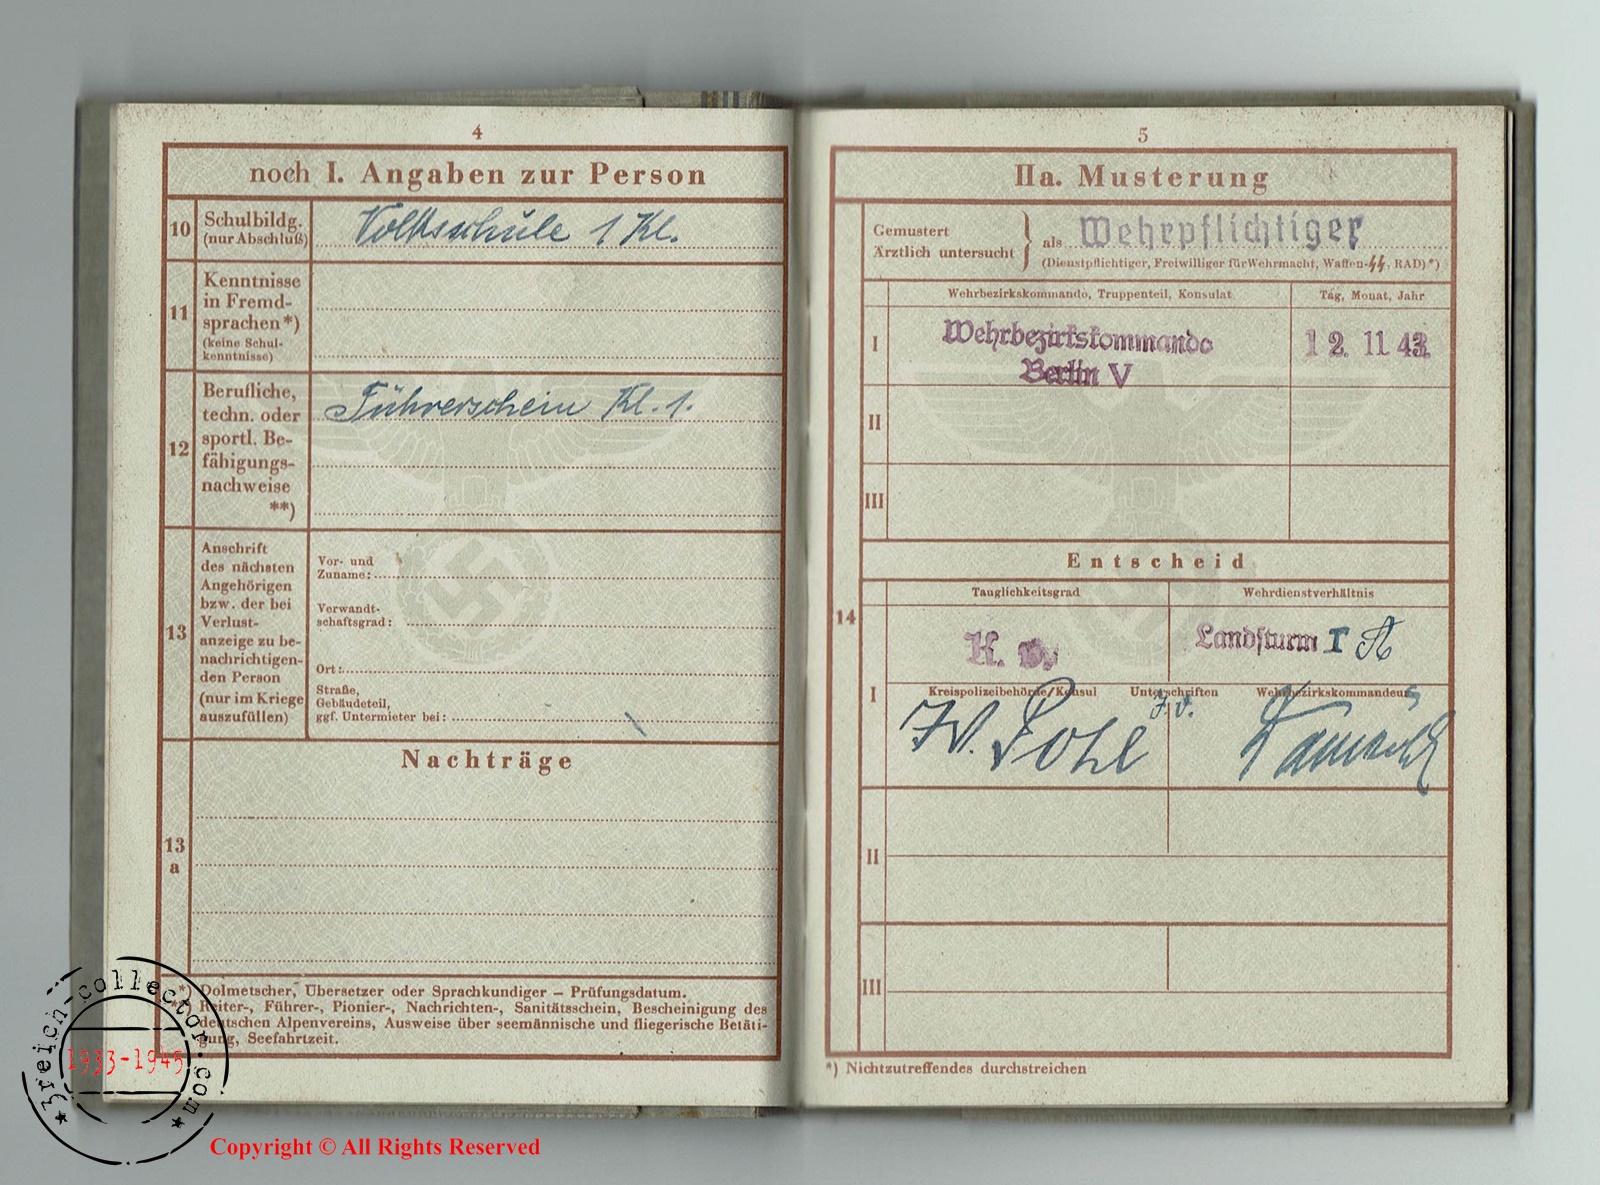 4
noch I. Angaben zur Person
10
Schulbildg.
(nur Abschluß)
Volksschule 1 Kl.
11
Kenntnisse
in Fremd-
sprachen*)
(keine Schul-
kenntnisse)
12
Berufliche,
techn. oder
sportl. Be-
fähigungs-
nachweise
**)
Führerschein Kl. 1.
13
Anschrift
des nächsten
Angehörigen
bzw. der bei
Verlust-
anzeige zu be-
nachrichtigen-
den Person
(nur im Kriege
auszufüllen)
Vor- und
Zuname:
Verwandt-
schaftsgrad:
Ort:
Straße,
Gebäudeteil,
ggf. Untermieter bei:
13
a
Nachträge
*) Dolmetscher, Übersetzer oder Sprachkundiger – Prüfungsdatum.
**) Reiter-, Führer-, Pionier-, Nachrichten-, Sanitätsschein, Bescheinigung des
deutschen Alpenvereins, Ausweise über seemännische und fliegerische Betäti-
gung, Seefahrtzeit.
5
IIa. Musterung
Gemustert
Ärztlich untersucht
als Wehrpflichtiger
(Dienstpflichtiger, Freiwilliger für Wehrmacht, Waffen-SS, RAD)*)
Wehrbezirkskommando, Truppenteil, Konsulat
Tag, Monat, Jahr
I
Wehrbezirkskommando
Berlin V
12. 11. 43.
II
III
Entscheid
14
Tauglichkeitsgrad
Wehrdienstverhältnis
K. v.
Landsturm I
I
Kreispolizeibehörde/Konsul
Unterschriften
Wehrbezirkskommandeur
J.V. Pohl
J.V.
II
III
*) Nichtzutreffendes durchstreichen
3reich-collector.com
1933-1945
Copyright © All Rights Reserved